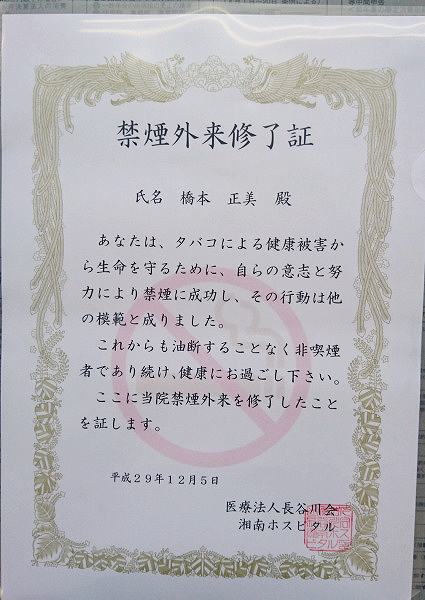 禁煙外来修了証
氏名 橋本 正美 殿
あなたは、タバコによる健康被害か
ら生命を守るために、自らの意志と努
力により禁煙に成功し、その行動は他
の模範と成りました。
これからも油断することなく非喫煙
者であり続け、健康にお過ごし下さい。
ここに当院禁煙外来を修了したこと
を証します。
平成29年12月5日
医療法人長谷川会
湘南ホスピタル